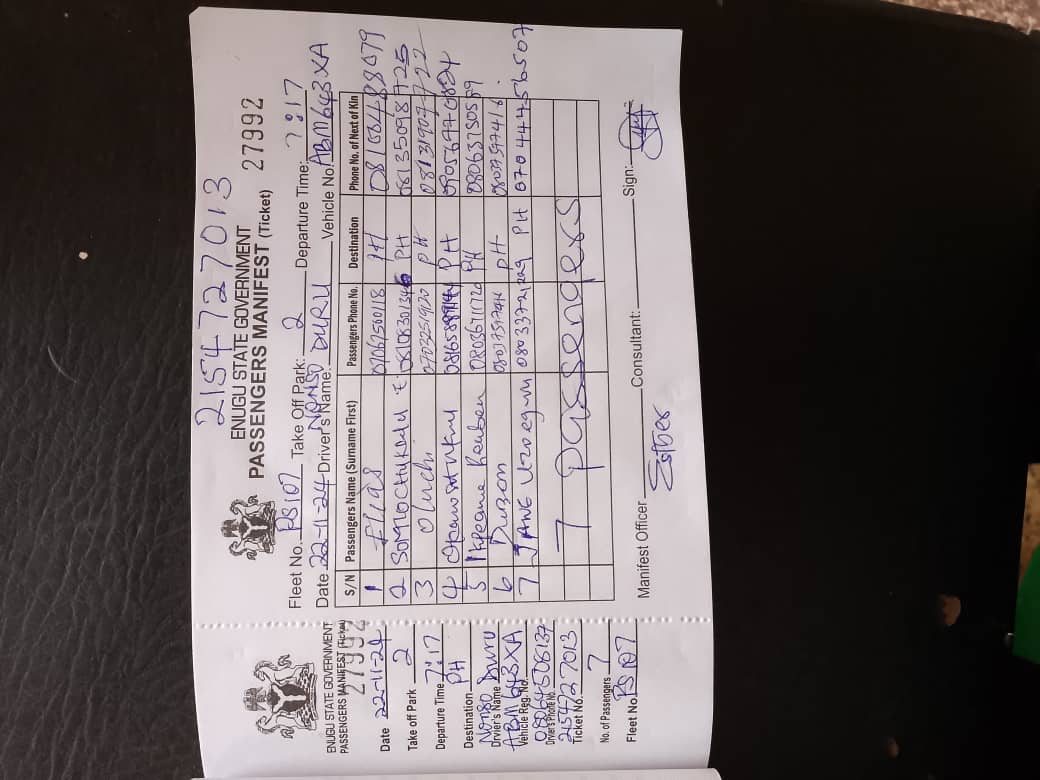 2154727013
ENUGU STATE GOVERNMENT
PASSENGERS MANIFEST (Ticket) 27992
Fleet No. PS107 Take Off Park: 2 Departure Time: 7:17
Date 22-11-24 Driver's Name: NONSO DURU Vehicle No. ABM643XA
S/N Passengers Name (Surname First) Passengers Phone No. Destination Phone No. of Next of Kin
1 Elias 07067560118 PH
2 SOMTOCHUKWU E. PH 08135098725
3 Oluchi 07032519120 PH
4 PH
5 Ikpeama Reuben 08036711720 PH 08063730589
6 PH
7 JANE Uzoegwu PH 07044756507
7 passengers
Manifest Officer Esther Consultant: Sign:
ENUGU STATE GOVERNMENT
PASSENGERS MANIFEST (Ticket)
27992
Date 22-11-24
Take off Park 2
Departure Time 7:17
Destination PH
Driver's Name Nonso Duru
Vehicle Reg. No. ABM643XA
Driver's Phone No. 08064506137
Ticket No. 2154727013
No. of Passengers 7
Fleet No PS107